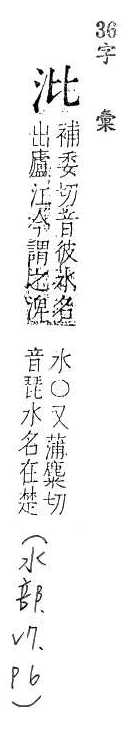 36字彙
沘
補委切音彼水名
出廬江今謂之淠
水○又蒲糜切
音琵水名在楚
(水部、V7、P6)